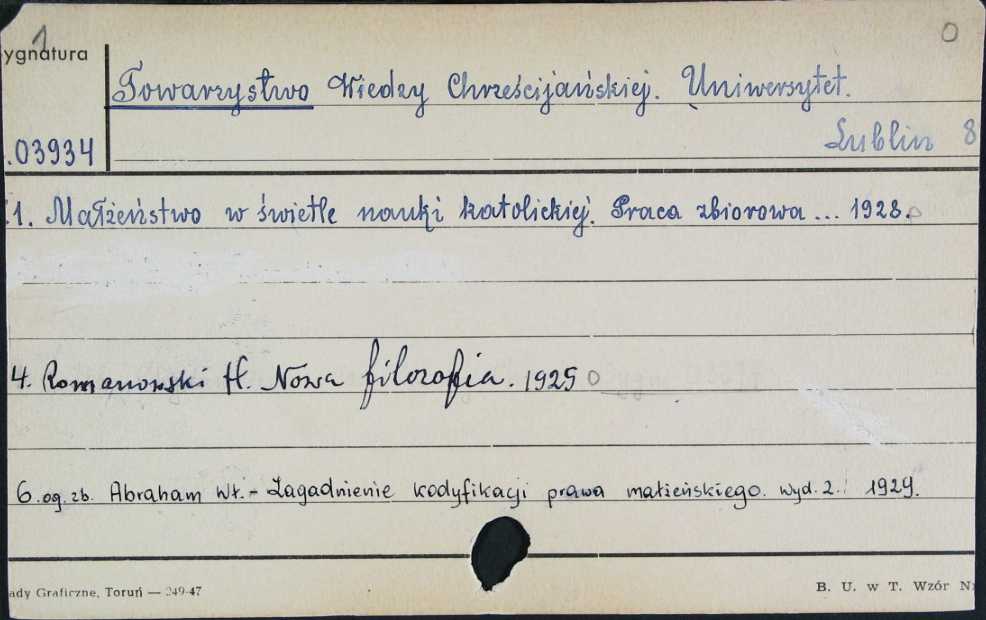 1 0
ygnatura
Towarzystwo Wiedzy Chrześcijańskiej. Uniwersytet.
.03934 Lublin 8
1. Małżeństwo w świetle nauki katolickiej. Praca zbiorowa ... 1928.
4. Romanowski H. Nowa filozofia. 1925
6. og. zb. Abraham Wł. - Zagadnienie kodyfikacji prawa małżeńskiego. wyd. 2. 1929.
ady Graficzne, Toruń — 249-47 B. U. w T. Wzór N